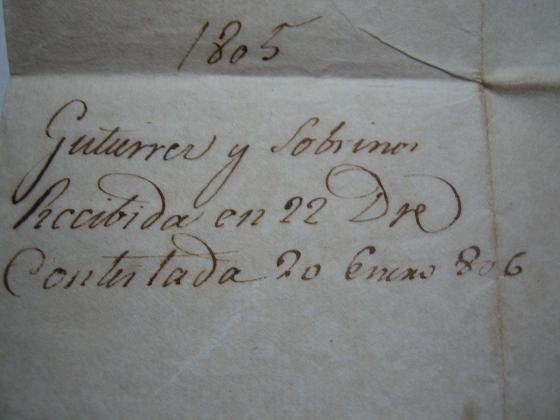 1805
Gutierrez y Sobrinos
Recibida en 22 Dre
Contestada 20 Enero 806